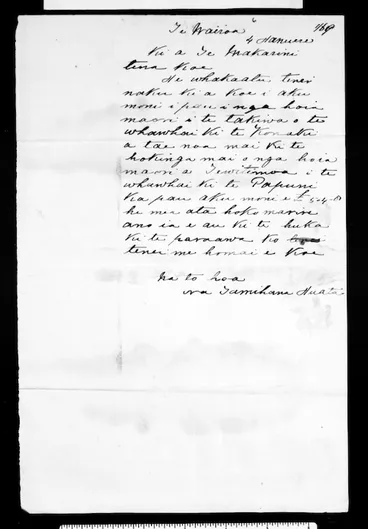 Te Wairoa
4 Hanuere
Ki a Te Makarini
tena koe
He whakaatu tenei
naku ki a koe i aku
moni i pau i nga hoia
maori i te takiwa o te
whawhai ki te Konaki
a tae noa mai ki te
hokinga mai o nga hoia
maori a Tewitimoa i te
whawhai ki te Papuni
ka pau aku moni e £5-4-0
he mea ata hoko marire
ano ia e au ki te huka
ki te paraawa ko
tenei me homai e koe
Na to hoa
na Tamihana Huata